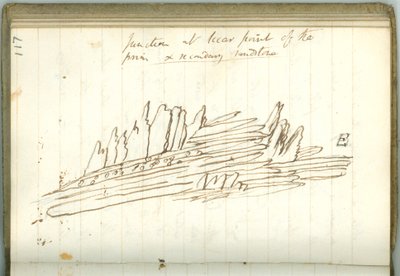 117
Junction at near point of the
prim & secondary sandstone
E